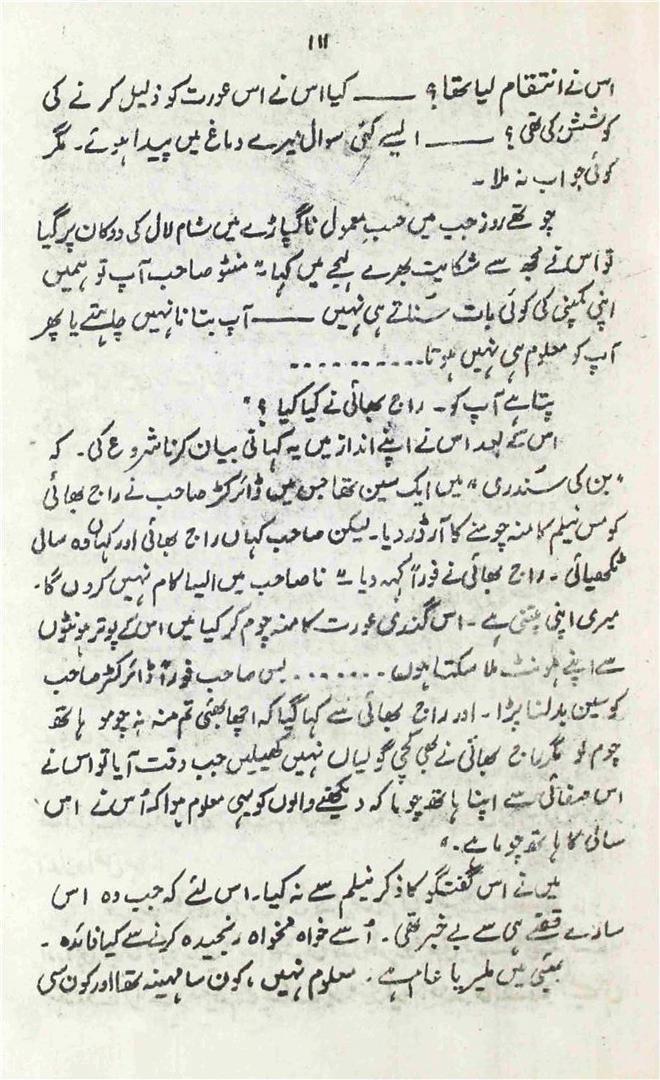 ۱۱۱
اس نے انتقام لیا تھا؟ ــــــ کیا اس نے اس عورت کو ذلیل کرنے کی
کوشش کی تھی؟ ــــــ ایسے کئی سوال میرے دماغ میں پیدا ہوئے۔ مگر
کوئی جواب نہ ملا۔
چوتھے روز جب میں حسبِ معمول ناگپاڑے میں شام لال کی دوکان پر گیا
تو اس نے مجھ سے شکایت بھرے لہجے میں کہا۔" منٹو صاحب آپ تو ہمیں
اپنی کمپنی کی کوئی بات سناتے ہی نہیں ــــــ آپ بتانا نہیں چاہتے یا پھر
آپ کو معلوم ہی نہیں ہوتا..........
پتا ہے آپ کو۔ راج بھائی نے کیا کیا؟"
اس کے بعد اس نے اپنے انداز میں یہ کہانی بیان کرنا شروع کی۔ کہ
"بن کی سندری" میں ایک سین تھا جس میں ڈائرکٹر صاحب نے راج بھائی
کو مس نیلم کا منہ چومنے کا آرڈر دیا۔ لیکن صاحب کہاں راج بھائی اور کہاں وہ سالی
ٹکھیائی۔ راج بھائی نے فوراً کہہ دیا۔" نا صاحب میں ایسا کام نہیں کروں گا۔
میری اپنی پتنی ہے۔ اس گندی عورت کا منہ چوم کر کیا میں اس کے پوتر ہونٹوں
سے اپنے ہونٹ ملا سکتا ہوں........ بس صاحب فوراً ڈائرکٹر صاحب
کو سین بدلنا پڑا۔ اور راج بھائی سے کہا گیا کہ اچھا بھئی تم منہ نہ چومو ہاتھ
چوم لو مگر راج بھائی نے بھی کچی گولیاں نہیں کھیلیں جب وقت آیا تو اس نے
اس صفائی سے اپنا ہاتھ چوما کہ دیکھنے والوں کو یہی معلوم ہوا کہ اُس نے اس
سالی کا ہاتھ چوما ہے۔"
میں نے اس گفتگو کا ذکر نیلم سے نہ کیا۔ اس لئے کہ جب وہ اس
سارے قصے ہی سے بے خبر تھی۔ اُسے خواہ مخواہ رنجیدہ کرنے سے کیا فائدہ۔
بمبئی میں ملیریا عام ہے۔ معلوم نہیں، کون سا مہینہ تھا اور کون سی